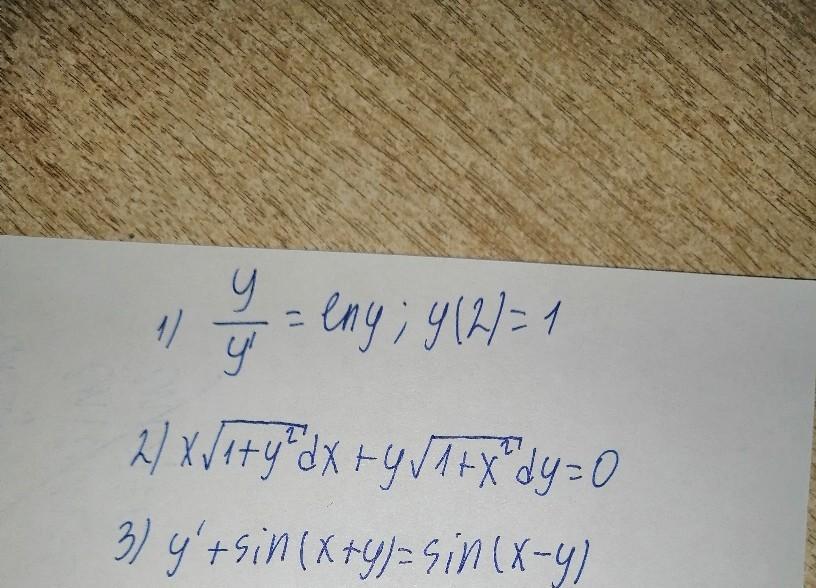 1) y/y' = ln y ; y(2) = 1
2) x√(1+y²)dx + y√(1+x²)dy = 0
3) y' + sin(x+y) = sin(x-y)